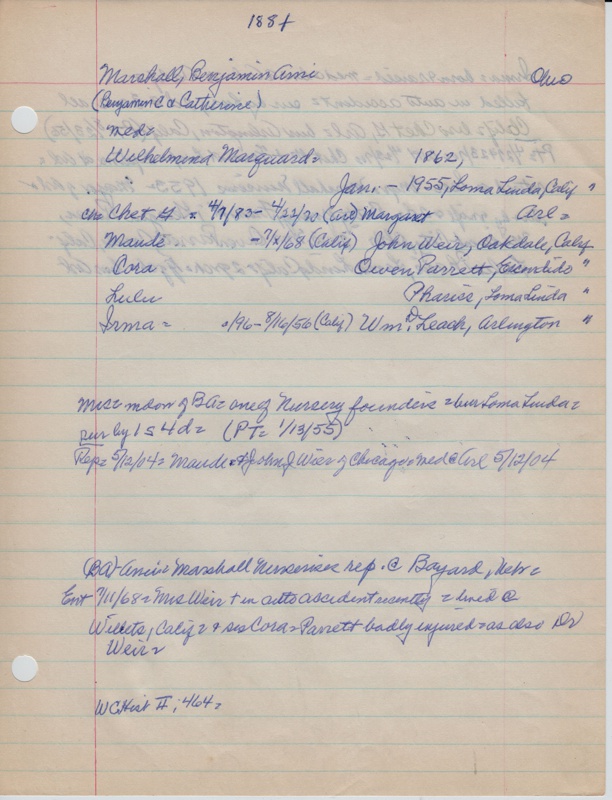 188+
Marshall, Benjamin Ami Ohio
(Benjamin C & Catherine)
med=
Wilhelmina Marquard= 1862,
Jan. - 1955, Loma Linda, Calif "
chn Chet G = 4/7/83 - 4/22/70 (Arl) Margaret Arl=
Maude - 7/ /68 (Calif) John Weir, Oakdale, Calif
Cora Owen Parrett, Escondido "
Lulu Pharise, Loma Linda "
Irma = /96 - 8/16/56 (Calif) Wm D. Leach, Arlington "
Mrs= mdow of BA= one of Nursery founders = bur Loma Linda=
sur by 1 s 4 d= (PT= 1/13/55)
Rep= 5/12/04= Maude & John J Wier of Chicago= med @ Arl 5/12/04
(BA) Ami= Marshall Nurseries rep. @ Bayard, Nebr=
Ent 7/11/68= Mrs Weir + in auto accident recently = lived @
Willets, Calif= + sis Cora= Parrett badly injured= as also Dr
Weir=
WC Hist II; 464=